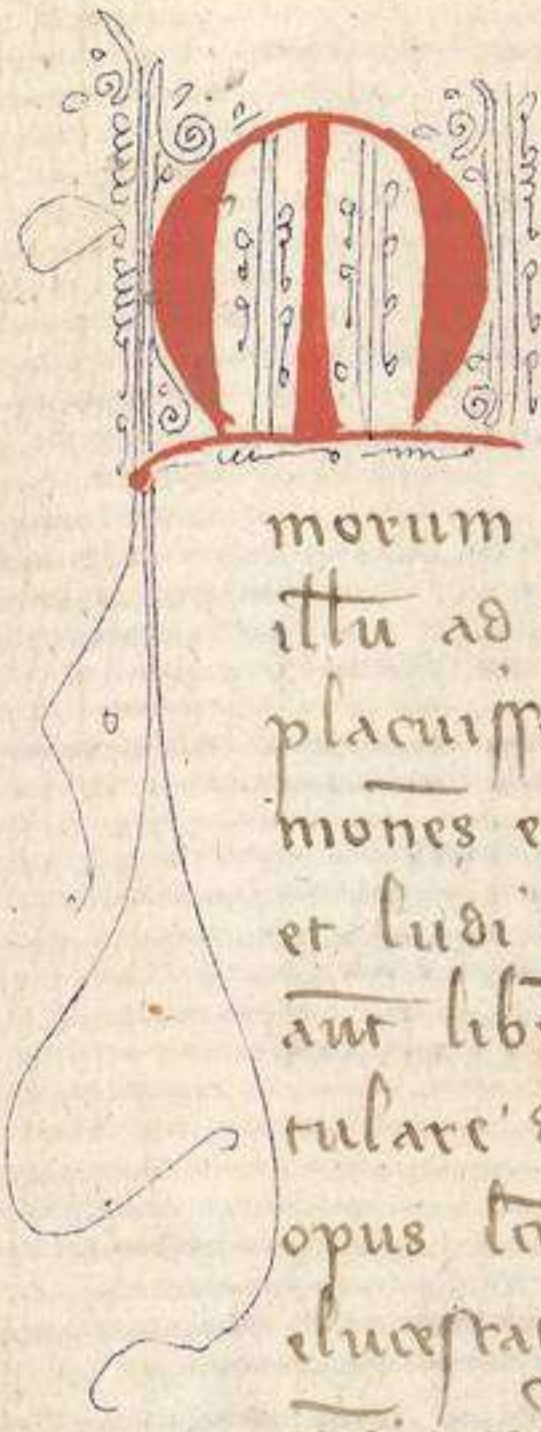 M
morum
illū ad
placuiss
mones e
et ludi
aūt lib
tulare s
opus
elucesca